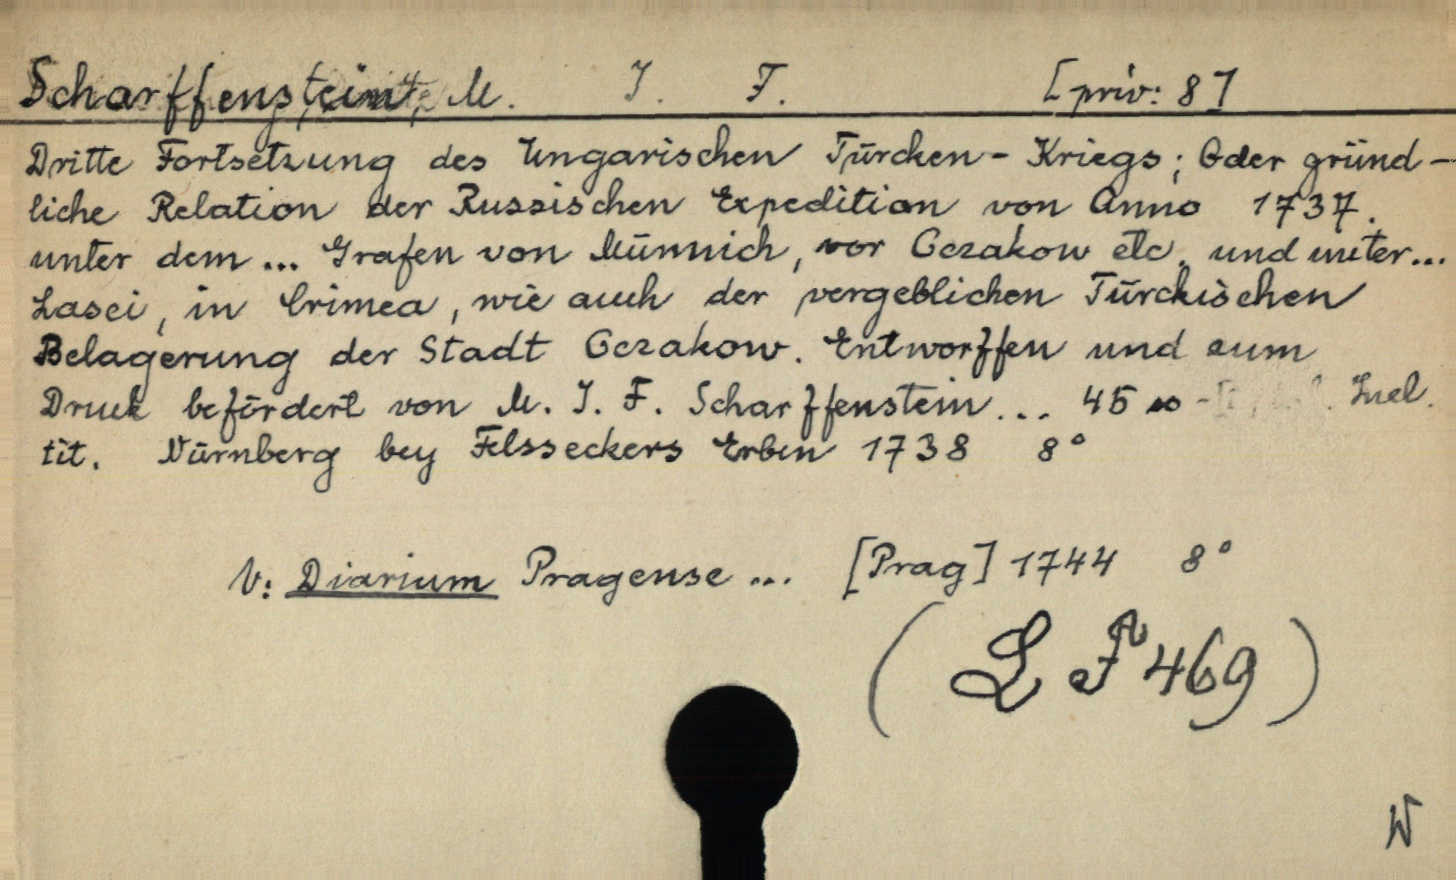 Scharffenstein, M. J. F. [priv: 8]
Dritte Fortsetzung des Ungarischen Türcken-Kriegs; Oder gründ-
liche Relation der Russischen Expedition von Anno 1737.
unter dem... Grafen von Münnich, vor Oczakow etc. und unter...
Lasci, in Crimea, wie auch der vergeblichen Türckischen
Belagerung der Stadt Oczakow. Entworffen und zum
Druck befördert von M. J. F. Scharffenstein... 45
tit. Nürnberg bey Felsseckers Erben 1738 8°
V: Diarium Pragense... [Prag] 1744 8°
(L 469)
W